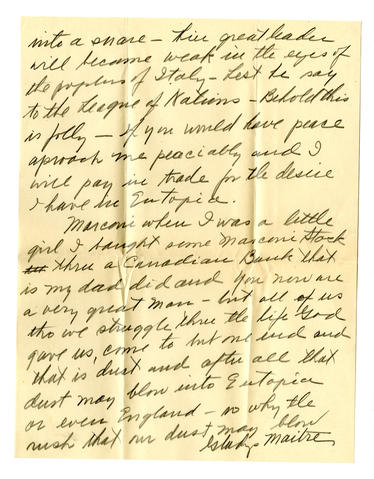 into a snare - hin great leader
will become weak in the eyes of
the populers of Italy - Lest he say
to the League of Nations - Behold this
is folly - If you would have peace
aproach me peaciably and I
will pay in trade for the desire
I have in Eutopica.
Marconi when I was a little
girl I baught some Marconi Stock
thru a Canadian Bank that
is my dad did and you now are
a very great man - but all of us
tho we struggle thru the life God
gave us, come to but one end and
that is dust and after all that
dust may blow into Eutopica
or even England - so why the
rush that our dust may blow
Gladys Maitre